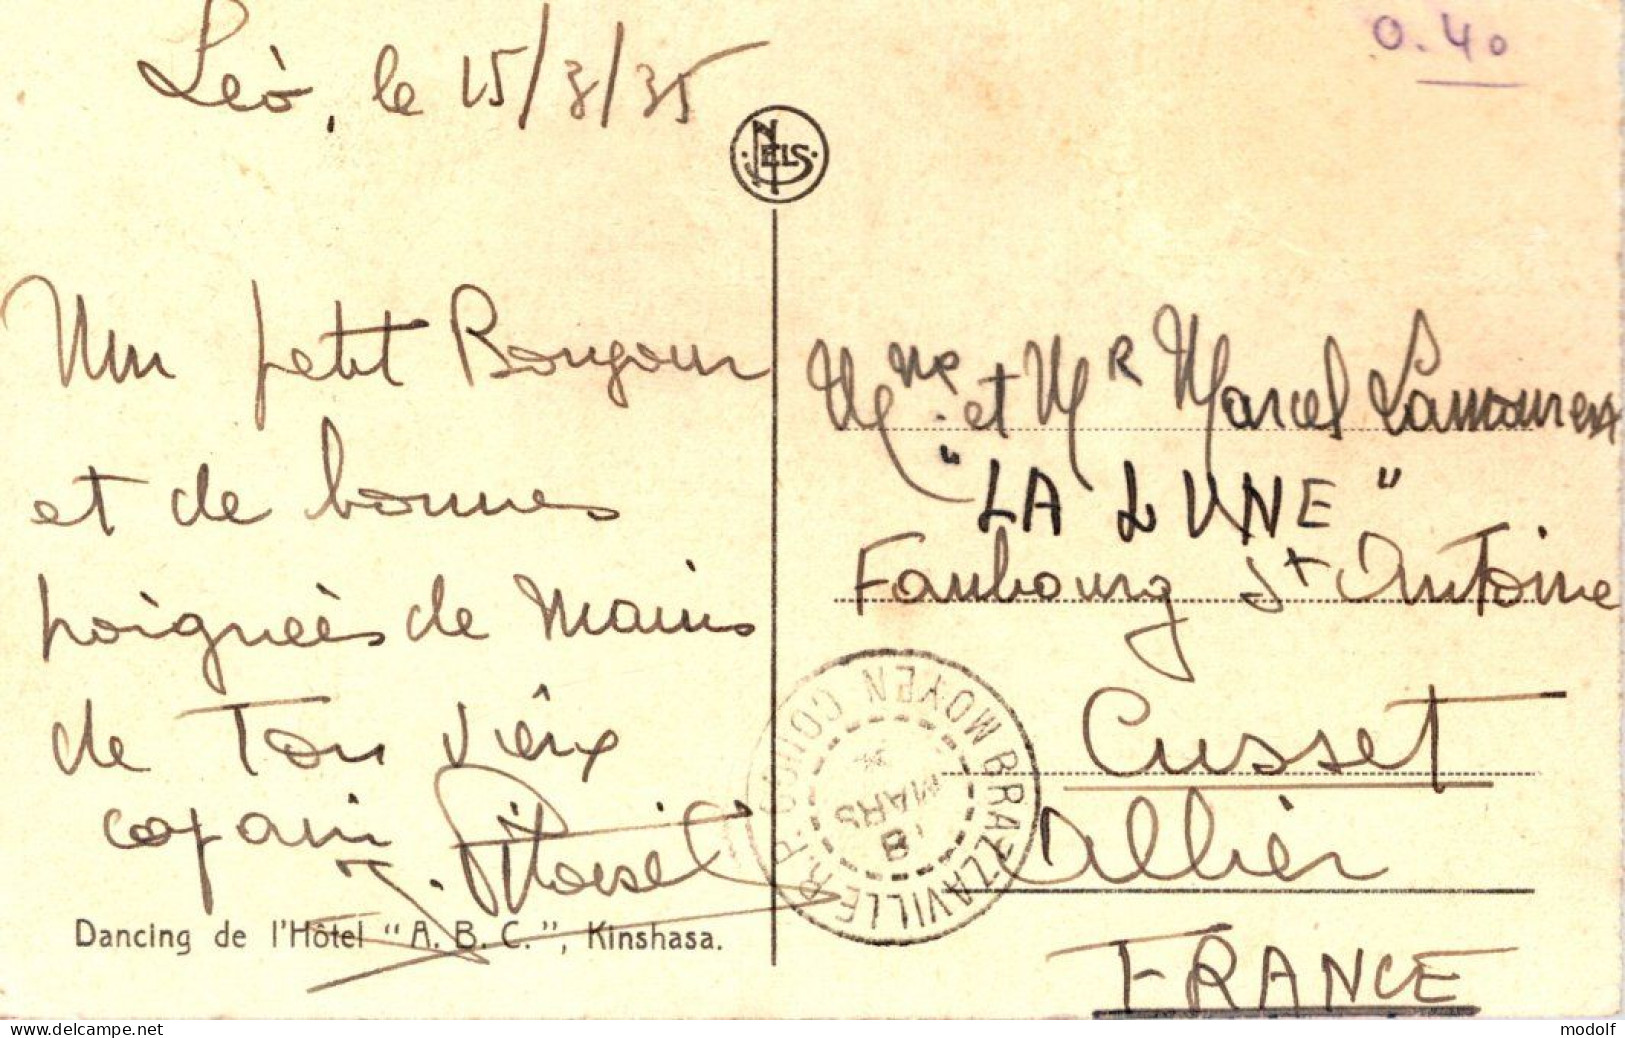 0.40
Léò, le 15/3/35
NELS
Un petit Bonjour
et de bonnes
poignées de mains
de Ton vieux
copain
Dancing de l'Hôtel "A. B. C.", Kinshasa.
Mme et MR Marcel Lamoureux
"LA LUNE"
Faubourg St Antoine
Cusset
Allier
FRANCE
BRAZZAVILLE R.P. CONGO MOYEN
MARS
delcampe.net
modolf